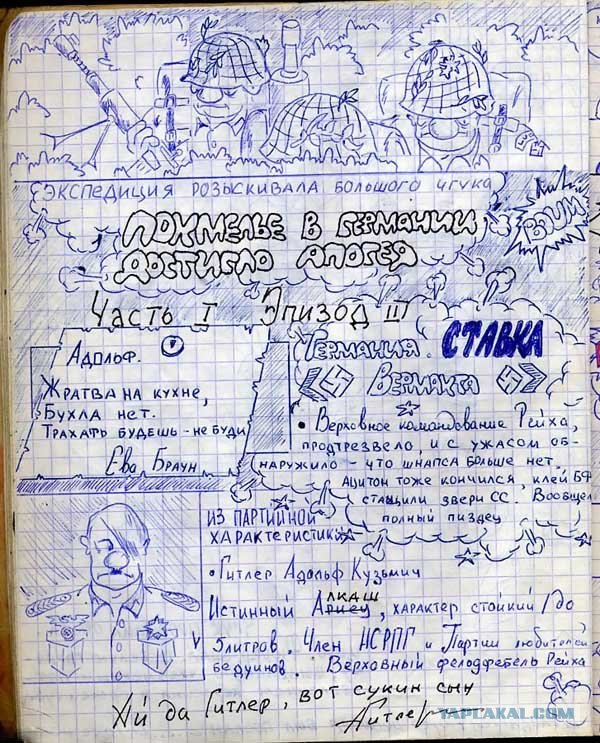 ЭКСПЕДИЦИЯ РОЗЫСКИВАЛА БОЛЬШОГО ЧГУКА
ПОХМЕЛЬЕ В ГЕРМАНИИ
ДОСТИГЛО АПОГЕЯ
BOUM
Часть I Эпизод III
Адольф.
Жратва на кухне,
Бухла нет.
Трахать будешь - не буди
Ева Браун
Германия. СТАВКА
Вермахта
• Верховное командование Рейха,
протрезвело, и с ужасом об-
наружило - что шнапса больше нет.
Ацитон тоже кончился, клей БФ
стащили звери СС. Вообщем
полный пиздец
ИЗ ПАРТИЙНОЙ
ХАРАКТЕРИСТИКИ
• Гитлер Адольф Кузьмич
ЛКАШ
Истинный Ариец, характер стойкий /до
5 литров. Член НСРПГ и Партии любителей
бедуинов. Верховный Рейха
Ай да Гитлер, вот сукин сын
Гитлер
YAPLAKAL.COM